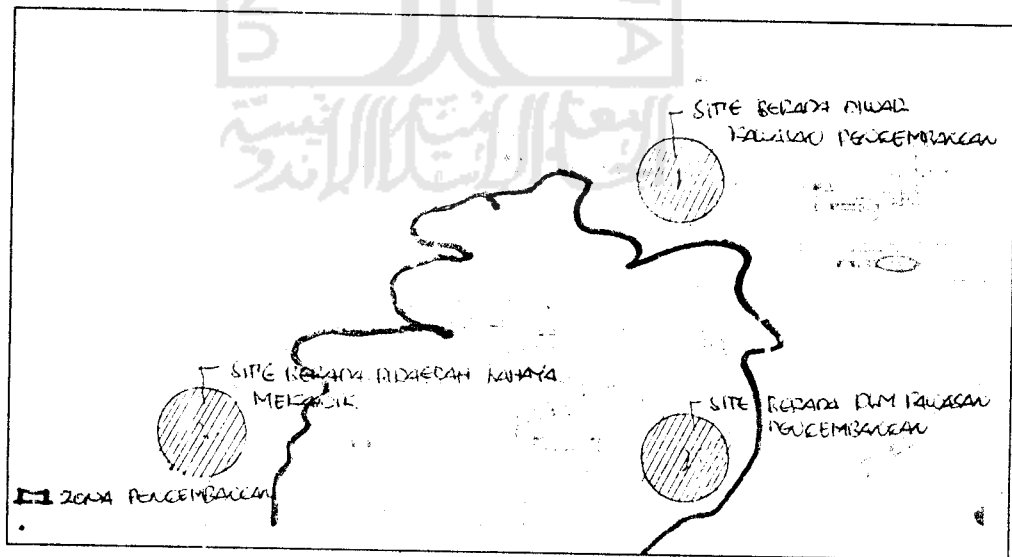 SITE BERADA DILUAR
KAWASAN PENGEMBANGAN
SITE BERADA DIDAERAH BAHAYA
SITE BERADA DLM KAWASAN
PENGEMBANGAN
ZONA PENGEMBANGAN